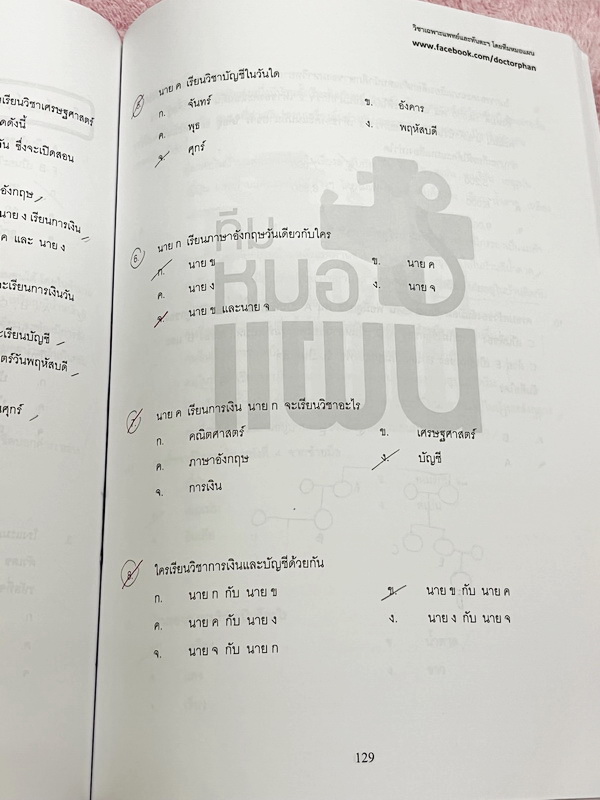 วิชาเฉพาะแพทย์และทันตะฯ โดยทีมหมอแผน
www.facebook.com/doctorphan
รียนวิชาเศรษฐศาสตร์
ตดังนี้
วัน ซึ่งจะเปิดสอน
อังกฤษ
นาย ง เรียนการเงิน
ค และ นาย ง
ะเรียนการเงินวัน
ะเรียนบัญชี
ตร์วันพฤหัสบดี
ศุกร์
5. นาย ค เรียนวิชาบัญชีในวันใด
ก. จันทร์ ข. อังคาร
ค. พุธ ง. พฤหัสบดี
จ. ศุกร์
6. นาย ก เรียนภาษาอังกฤษวันเดียวกับใคร
ก. นาย ข ข. นาย ค
ค. นาย ง ง. นาย จ
จ. นาย ข และนาย จ
ทีม
หมอ
แผน
7. นาย ค เรียนการเงิน นาย ก จะเรียนวิชาอะไร
ก. คณิตศาสตร์ ข. เศรษฐศาสตร์
ค. ภาษาอังกฤษ ง. บัญชี
จ. การเงิน
8. ใครเรียนวิชาการเงินและบัญชีด้วยกัน
ก. นาย ก กับ นาย ข ข. นาย ข กับ นาย ค
ค. นาย ค กับ นาย ง ง. นาย ง กับ นาย จ
จ. นาย จ กับ นาย ก
129